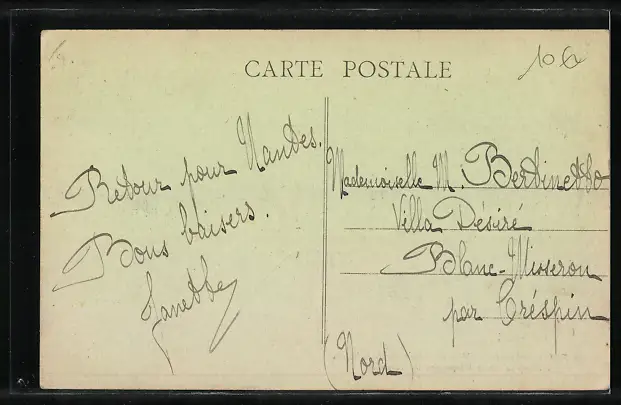 CARTE POSTALE
Retour pour Nantes.
Bons baisers.
Mademoiselle M. Bertinetto
Villa Désiré
Blanc-Misseron
par Créspin
(Nord)